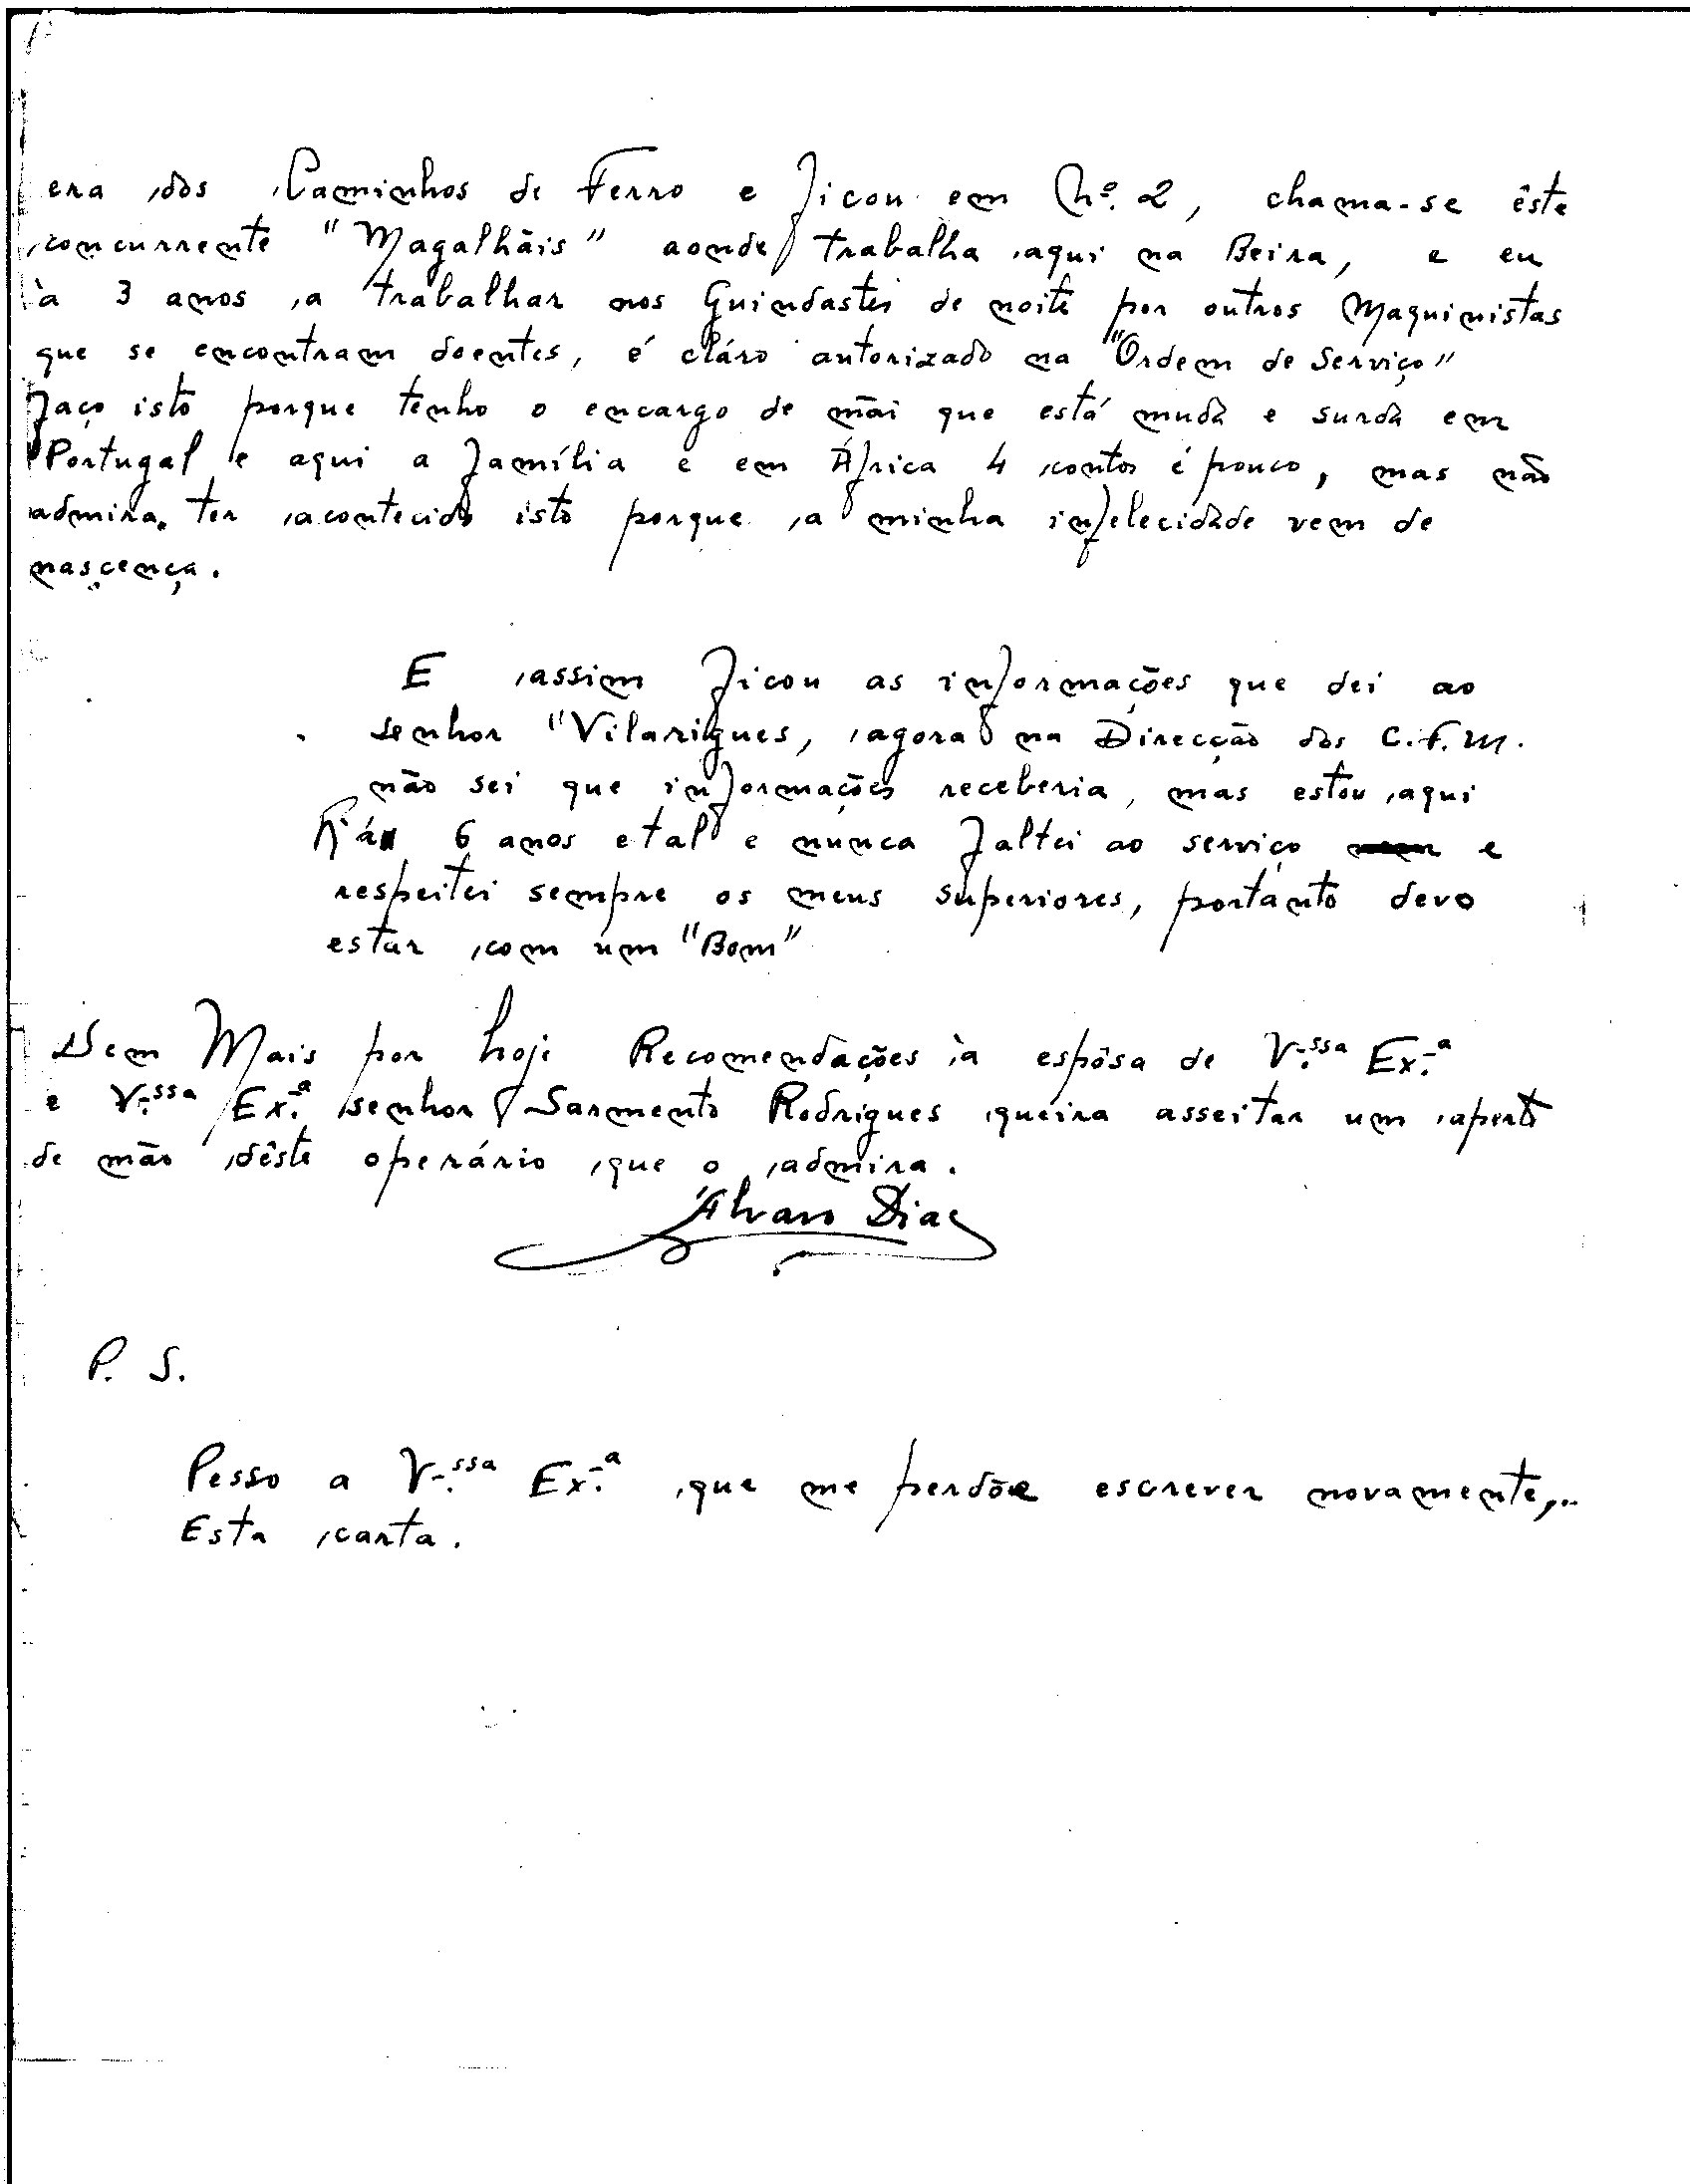 era dos Caminhos de Ferro e ficou em Nº. 2, chama-se êste
concurrente "Magalhãis" aonde trabalha aqui na Beira, e eu
à 3 anos a trabalhar nos Guindastes de noite por outros Maquinistas
que se encontram doentes, é cláro autorizado na "Ordem de Serviço"
faço isto porque tenho o encargo de mãi que está muda e surda em
Portugal e aqui a família e em África 4 contos é pouco, mas não
admira. ter acontecido isto porque a minha infelecidade vem de
nascença.
E assim ficou as informações que dei ao
senhor "Vilarigues, agora na Direcção dos C.F.M.
não sei que informações receberia, mas estou aqui
há 6 anos e tal e nunca faltei ao serviço e
respeitei sempre os meus superiores, portanto devo
estar com um "Bom"
Sem Mais por hoje Recomendações à espôsa de V.ssa Ex.ª
e V.ssa Ex.ª senhor Sarmento Rodrigues queira asseitar um aperto
de mão dêste operário que o admira.
Álvaro Dias
P. S.
Pesso a V.ssa Ex.ª que me perdõe escrever novamente,..
Esta carta.